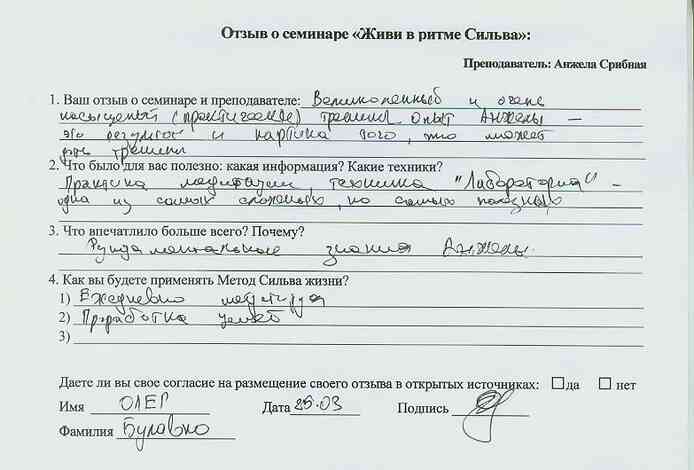 Отзыв о семинаре «Живи в ритме Сильва»:
Преподаватель: Анжела Срибная
1. Ваш отзыв о семинаре и преподавателе: Великолепный и очень
насыщеный (практические) тренинг. Опыт Анжелы –
это результат и картина того, что может
дать тренинг
2. Что было для вас полезно: какая информация? Какие техники?
Практика медитации, техника "Лаборатория" –
одна из самых сложных, но самых полезных
3. Что впечатлило больше всего? Почему?
Фундаментальные знания Анжелы.
4. Как вы будете применять Метод Сильва жизни?
1) Ежедневно медитируя
2) Проработка целей
3)
Даете ли вы свое согласие на размещение своего отзыва в открытых источниках: да нет
Имя ОЛЕГ Дата 25.03 Подпись
Фамилия Булавко